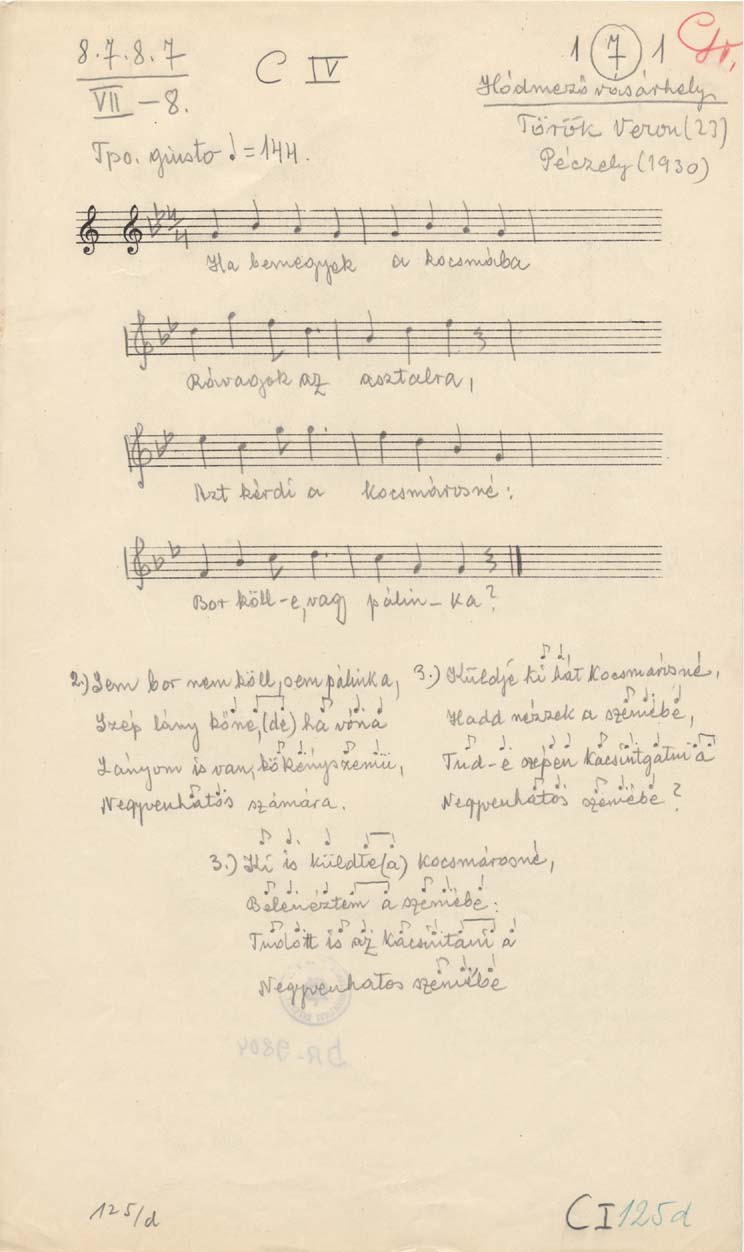 8.7.8.7
VII - 8.
C IV
1 7 1
Hódmezővásárhely
Török Veron (23)
Péczely (1930)
Tpo. giusto ♩=144.
4/4
Ha bemegyek a kocsmába
Rávagok az asztalra,
Azt kérdi a kocsmárosné:
Bor köll-e, vagy pálin-ka?
2.) Sem bor nem köll, sem pálinka,
Szép lány köne, (de) ha vóna
Lányom is van, kökényszemű,
Negyvenhatos számára.
3.) Küldje ki hát kocsmárisné,
Hadd nézzek a szemébe,
Tud-e szépen kacsintgatni a
Negyvenhatos szemébe?
3.) Ki is küldte (a) kocsmárosné,
Belenéztem a szemébe:
Tudott is az kacsintani a
Negyvenhatos szemébe
BR-9804
125/d
CI 125d